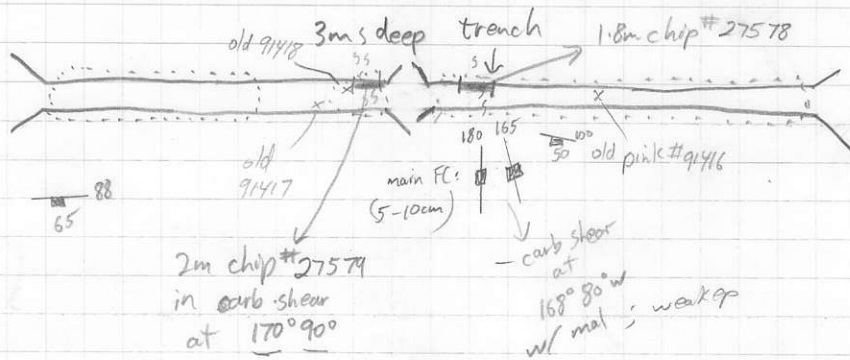 old 91418
3m s deep
trench
1.8m chip #27578
ss
s
ss
s
old
91417
180
165
100
50
old pink #91416
main FC:
(5-10cm)
88
65
2m chip #27579
in carb shear
at 170° 90°
- carb shear
at
168° 80°W
w/ mal ; weak ep